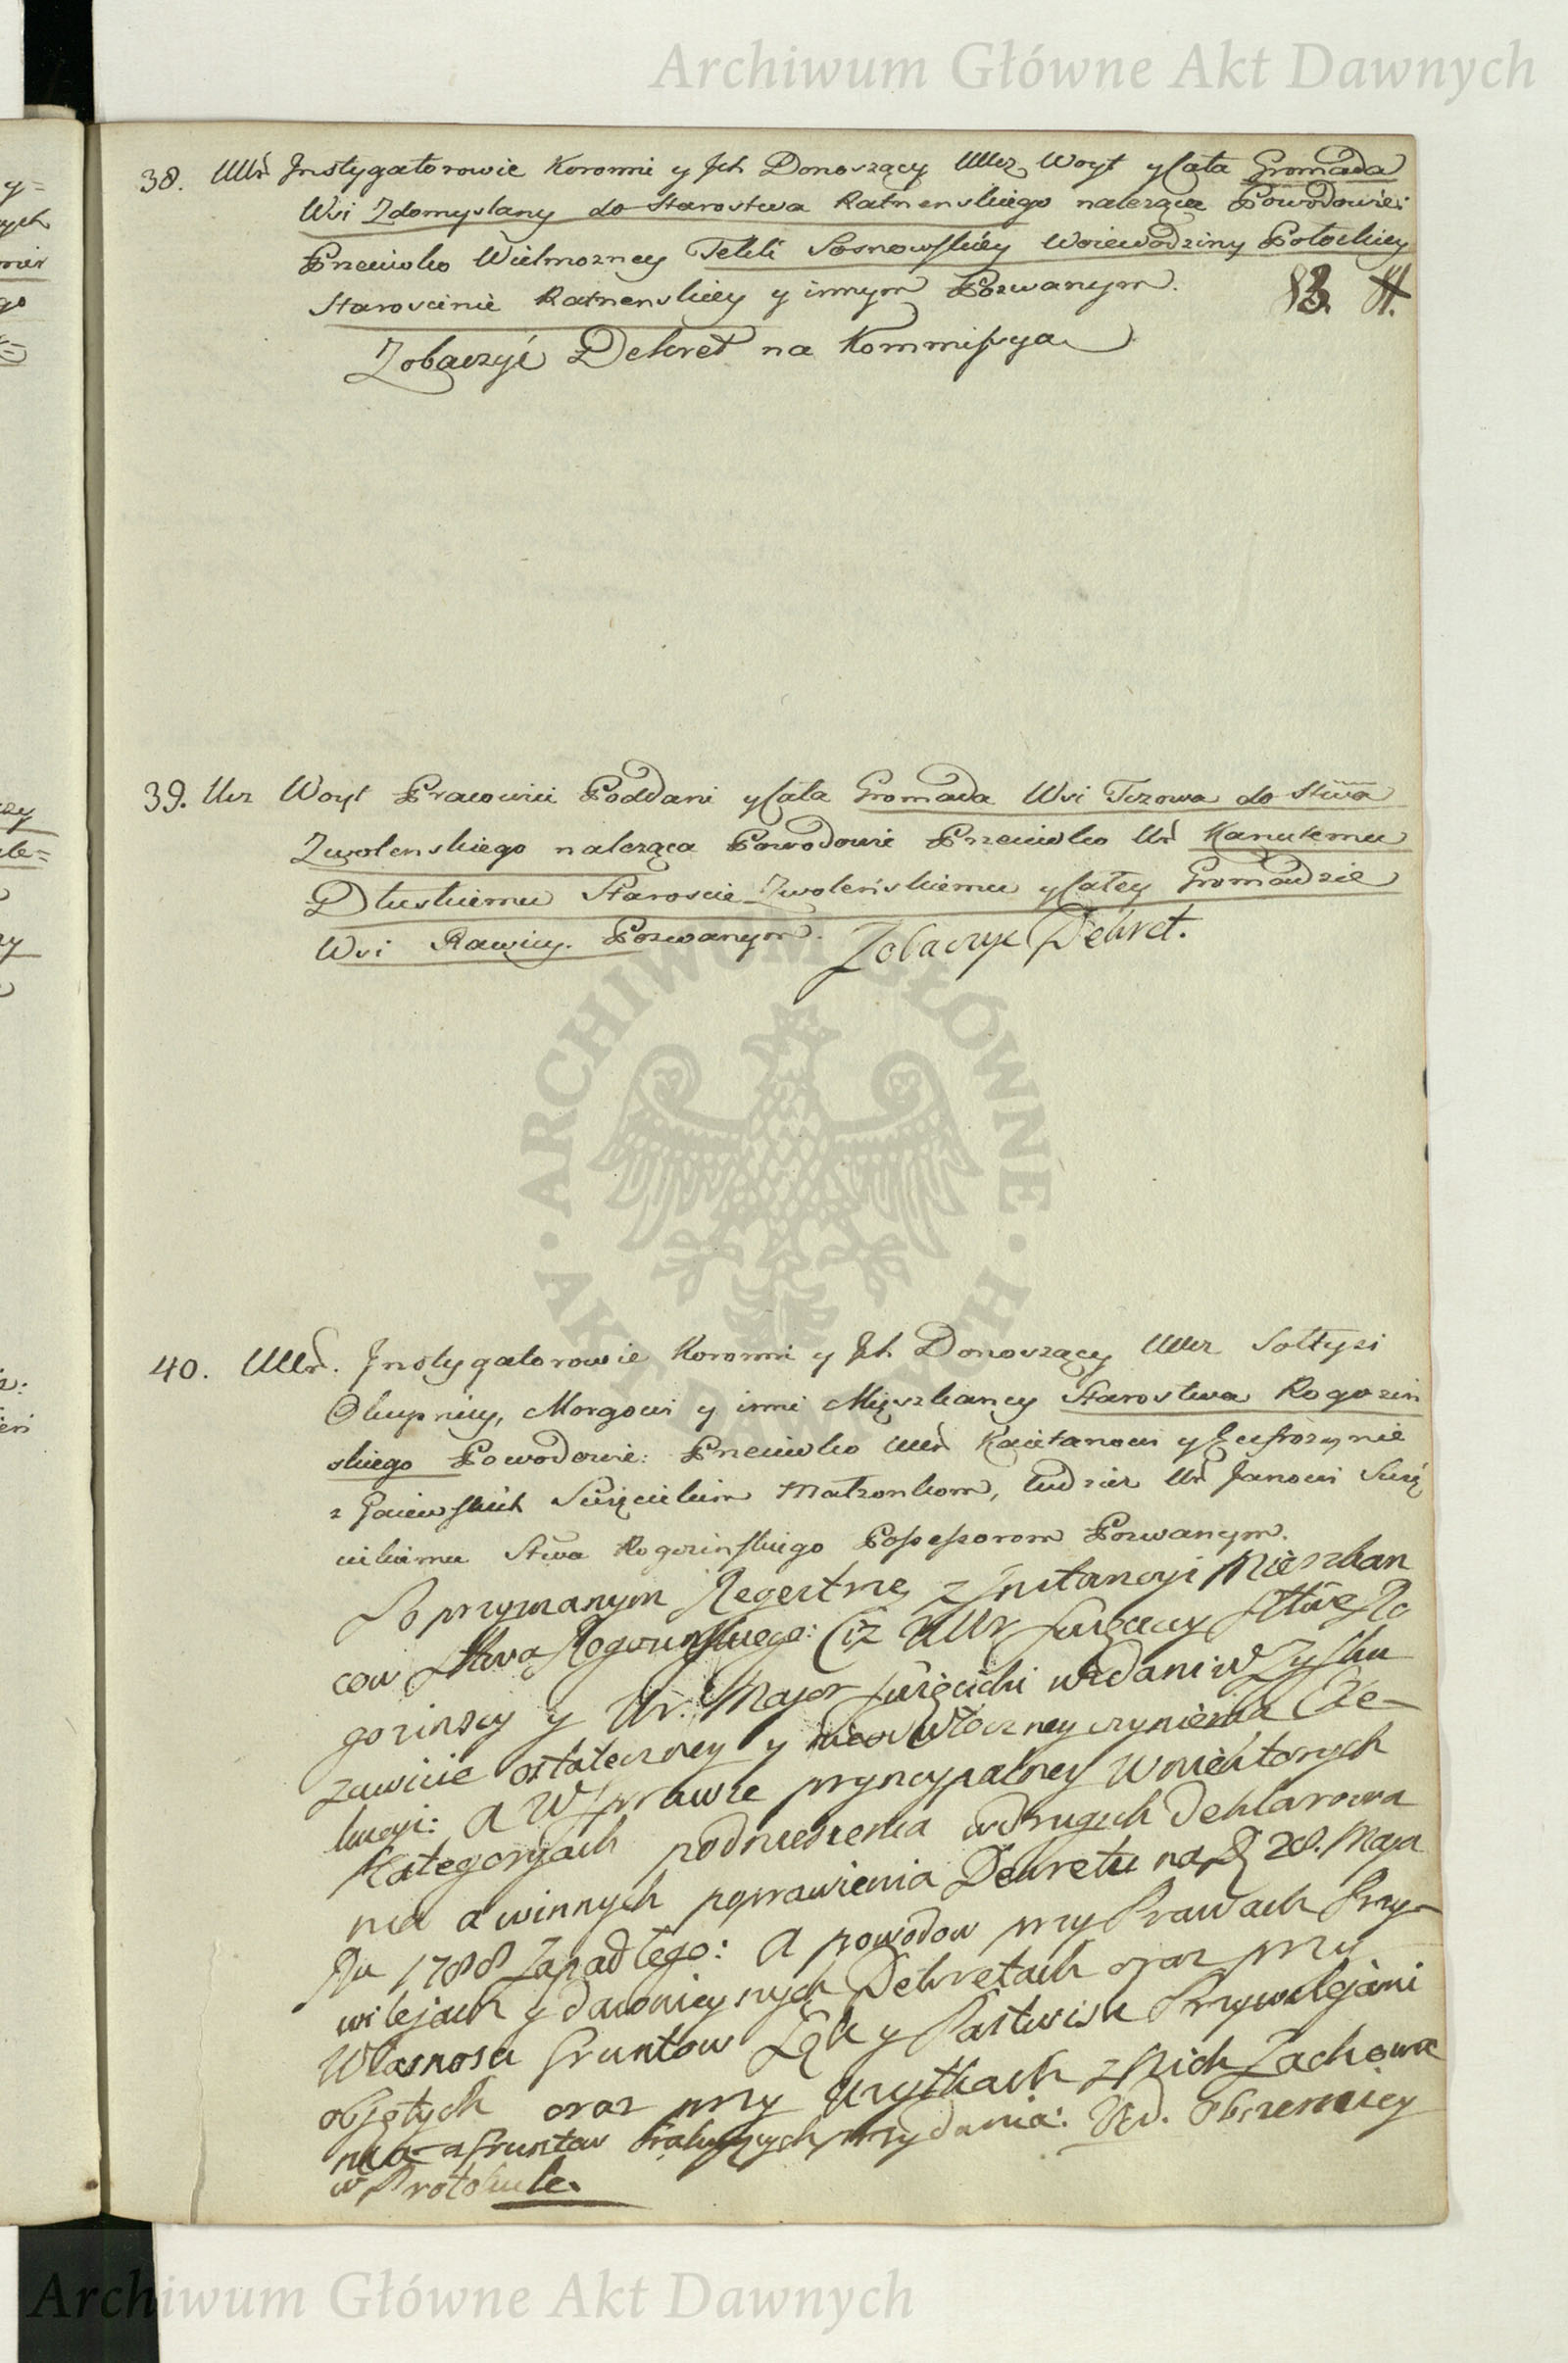 Archiwum Główne Akt Dawnych
38. UUr Instygatorowie Koronni y Jch Donoszący UUcz Woyt y Cała Gromada
Wsi Zdomyslany do Starostwa Ratnenskiego nalezące Powodowie:
Przeciwko Wielmozney Tekli Sosnowskiey Woiewodziny Połockiey
Starościnie Ratnenskiey y innym Pozwanym. 83. 81.
Zobaczyć Dekret na Kommissya
39. Ucz Woyt Pracowici Poddani y Cała Gromada Wsi Tczowa do Stwa
Zwolenskiego naleząca Powodowie Przeciwko Ur Kanutemu
Dłuskiemu Staroscie Zwoleńskiemu y Całey Gromadzie
Wsi Rawicy. Pozwanym. Zobaczyc Dekret.
ARCHIWUM GŁÓWNE AKT DAWNYCH
40. UUr. Instygatorowie Koronni y Jch Donoszący UUcz Sołtysi
Okupnicy, Morgowi y inni Mięszkancy Starostwa Rogozin
skiego Powodowie: Przeciwko UUr Kaietanowi y Eufrozynie
z Gaiewskich Swięcickim Małzonkom, tudziez Ur Janowi Swię
cickiemu Stwa Rogozinskiego Possessorom Pozwanym.
Po przyznanym Regestrze z Instancyi Mieszkan
cow Stwa Rogozinskiego: (iż UUr Swięciccy Sttwie Ro
gozinscy y Ur. Major Swięcicki wzdani w Zysku
zawicie ostateczney y niezwłoczney czynienia Exe-
kucyi: a W sprawie pryncypalney W niektorych
Kategoryach podniesienia w drugich deklarowa
nia a winnych poprawienia Dekretu na D. 28. Maja
Ru 1788 Zapadłego: A powodow przy Prawach Przy-
wilejach y dawnieyszych Dekretach oraz przy
Własnosci Gruntow Łąk y Pastwisk Przywilejami
objętych oraz przy Uzytkach z Nich Zachowa
nia a Gruntow przydania: Vd. Obszerniey
w Protokule.
Archiwum Główne Akt Dawnych